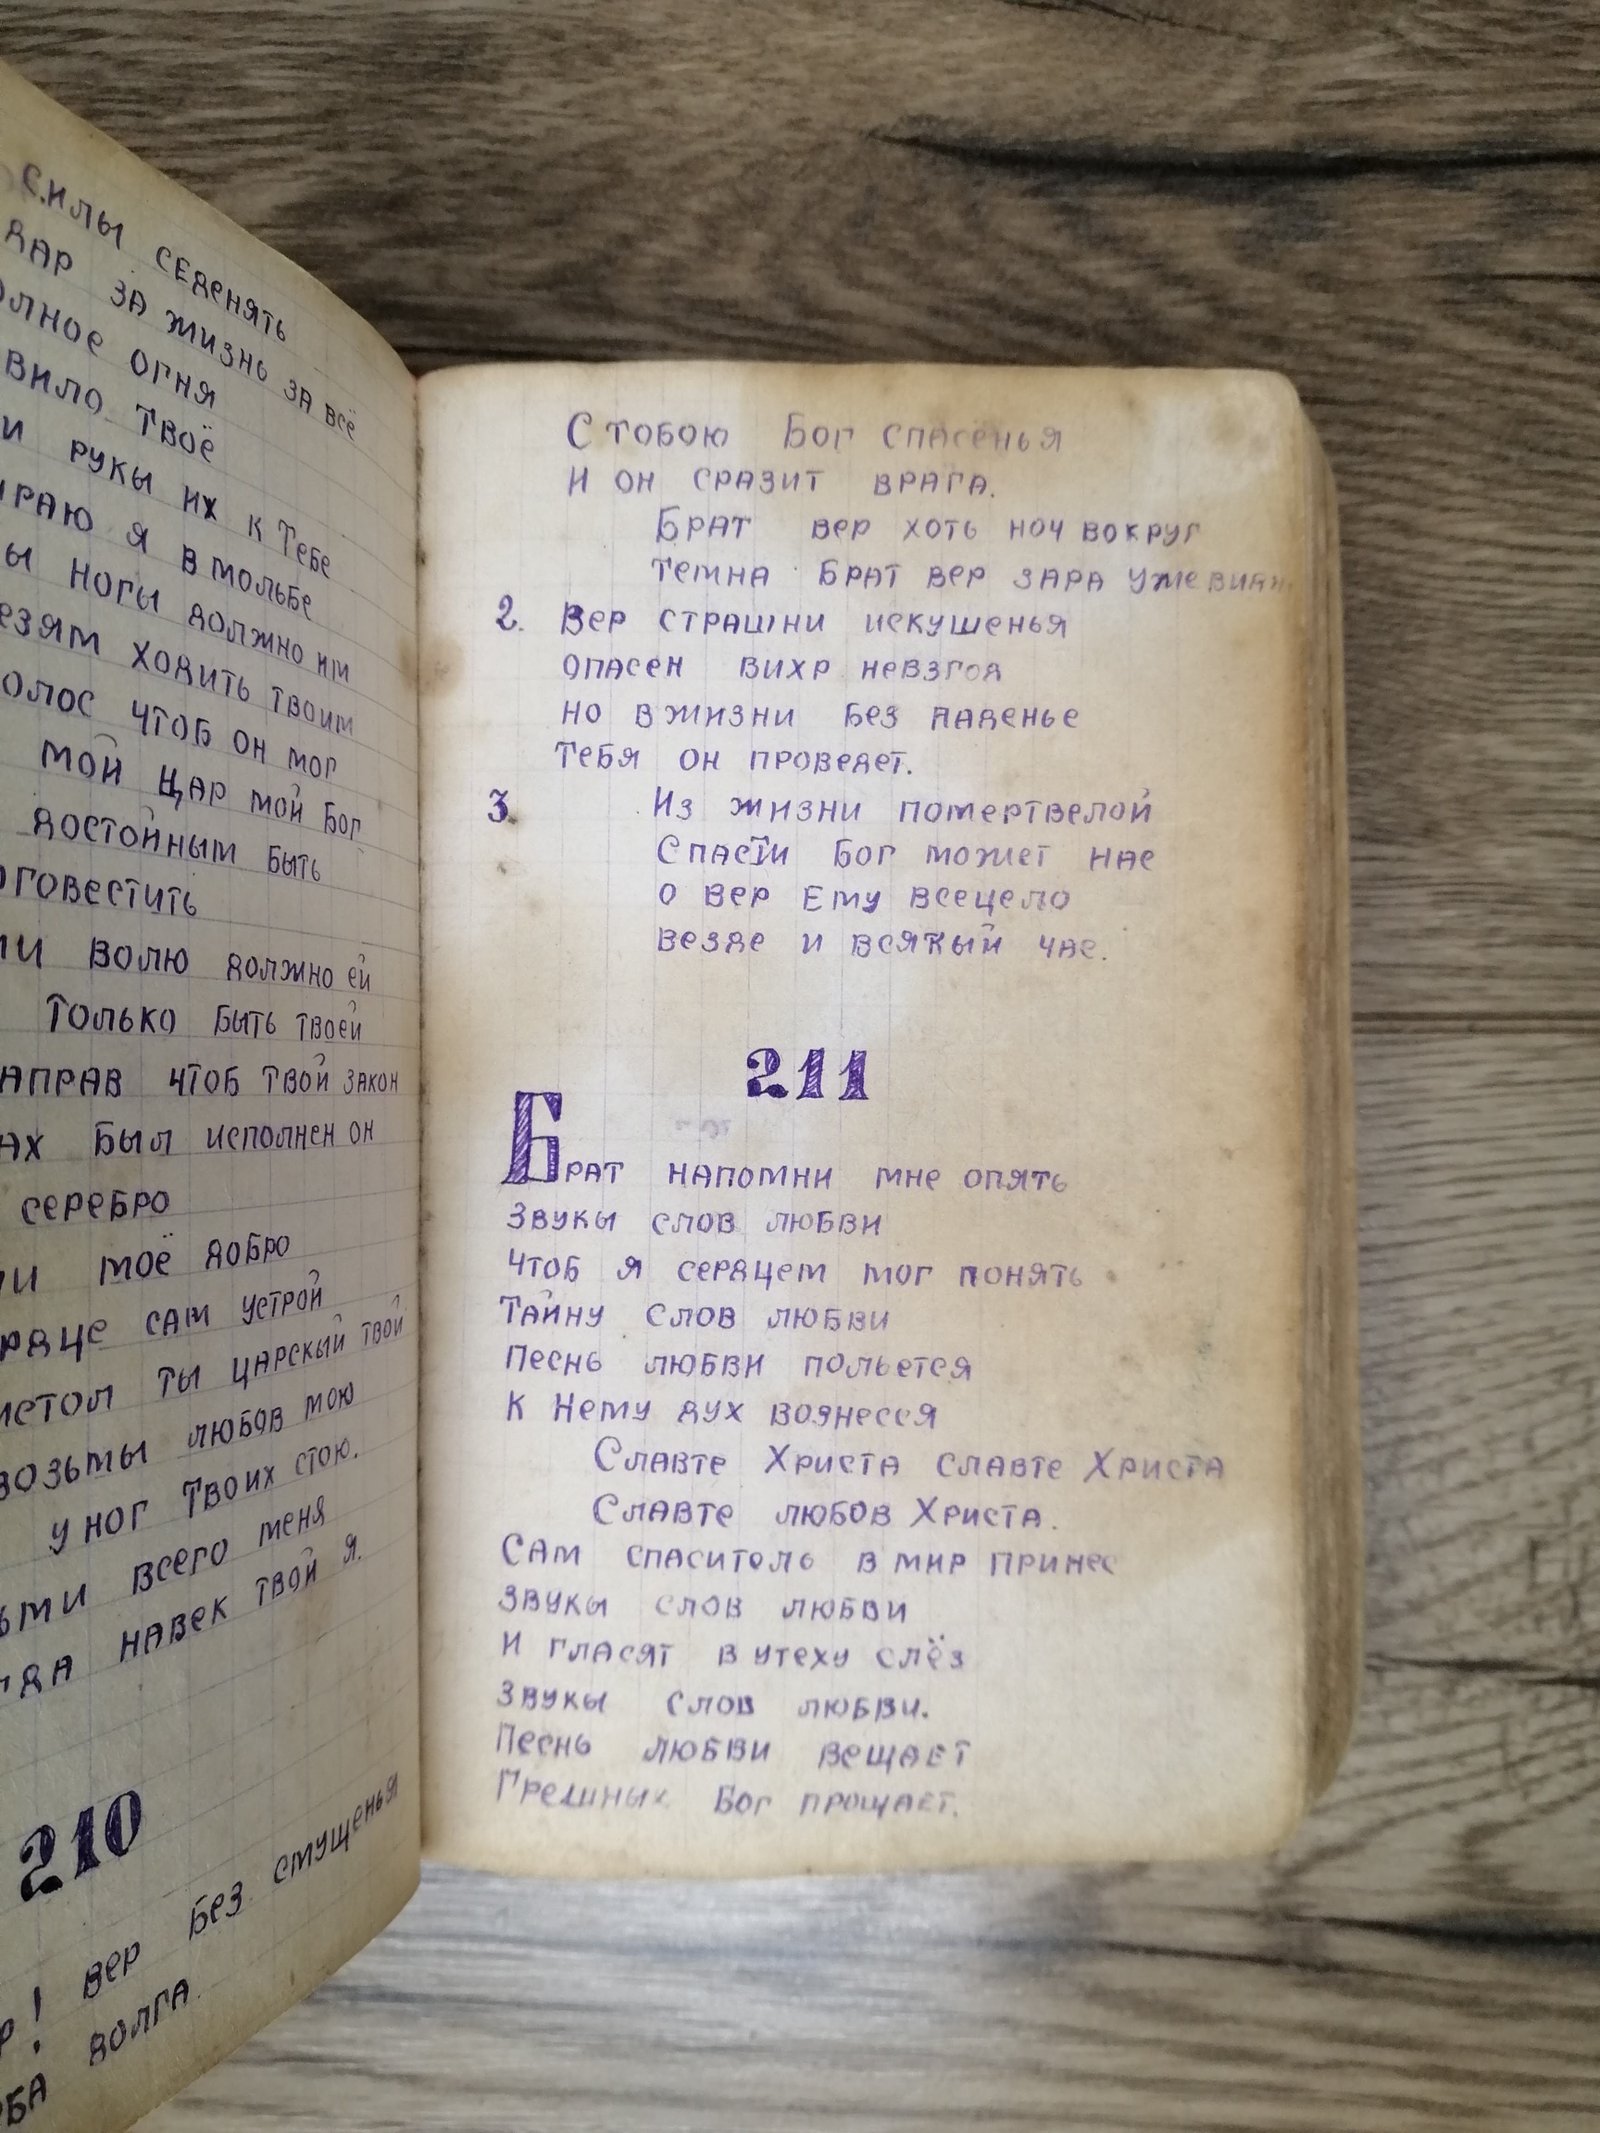 С.илы седенять
дар за жизнь за всё
огня
Твоё
и рукы их к Тебе
я в мольбе
ногы должно им
ходить твоим
чтоб он мог
мой Цар мой Бог
достойным быть
волю должно ей
только быть твоей
чтоб твой закон
был исполнен он
серебро
моё добро
сам устрой
ты царскый твой
возьмы любов мою
у ног Твоих стою.
всего меня
навек твой я.
210
! вер без смущенья
долга.
С тобою Бог спасенья
И он сразит врага.
Брат вер хоть ноч вокруг
темна брат вер зара уже
2. Вер страшни искушенья
опасен вихр невзгод
но в жизни без паденье
Тебя он проведет.
3. Из жизни помертвелой
Спасти Бог может нас
о вер Ему всецело
везде и всякый час.
211
Брат напомни мне опять
Звукы слов любви
Чтоб я сердцем мог понять
Тайну слов любви
Песнь любви польется
К Нему дух вознесся
Славте Христа славте Христа
Славте любов Христа.
Сам спаситель в мир принес
Звукы слов любви
И гласят в утеху слёз
Звукы слов любви.
Песнь любви вещает
Грешных Бог прощает.